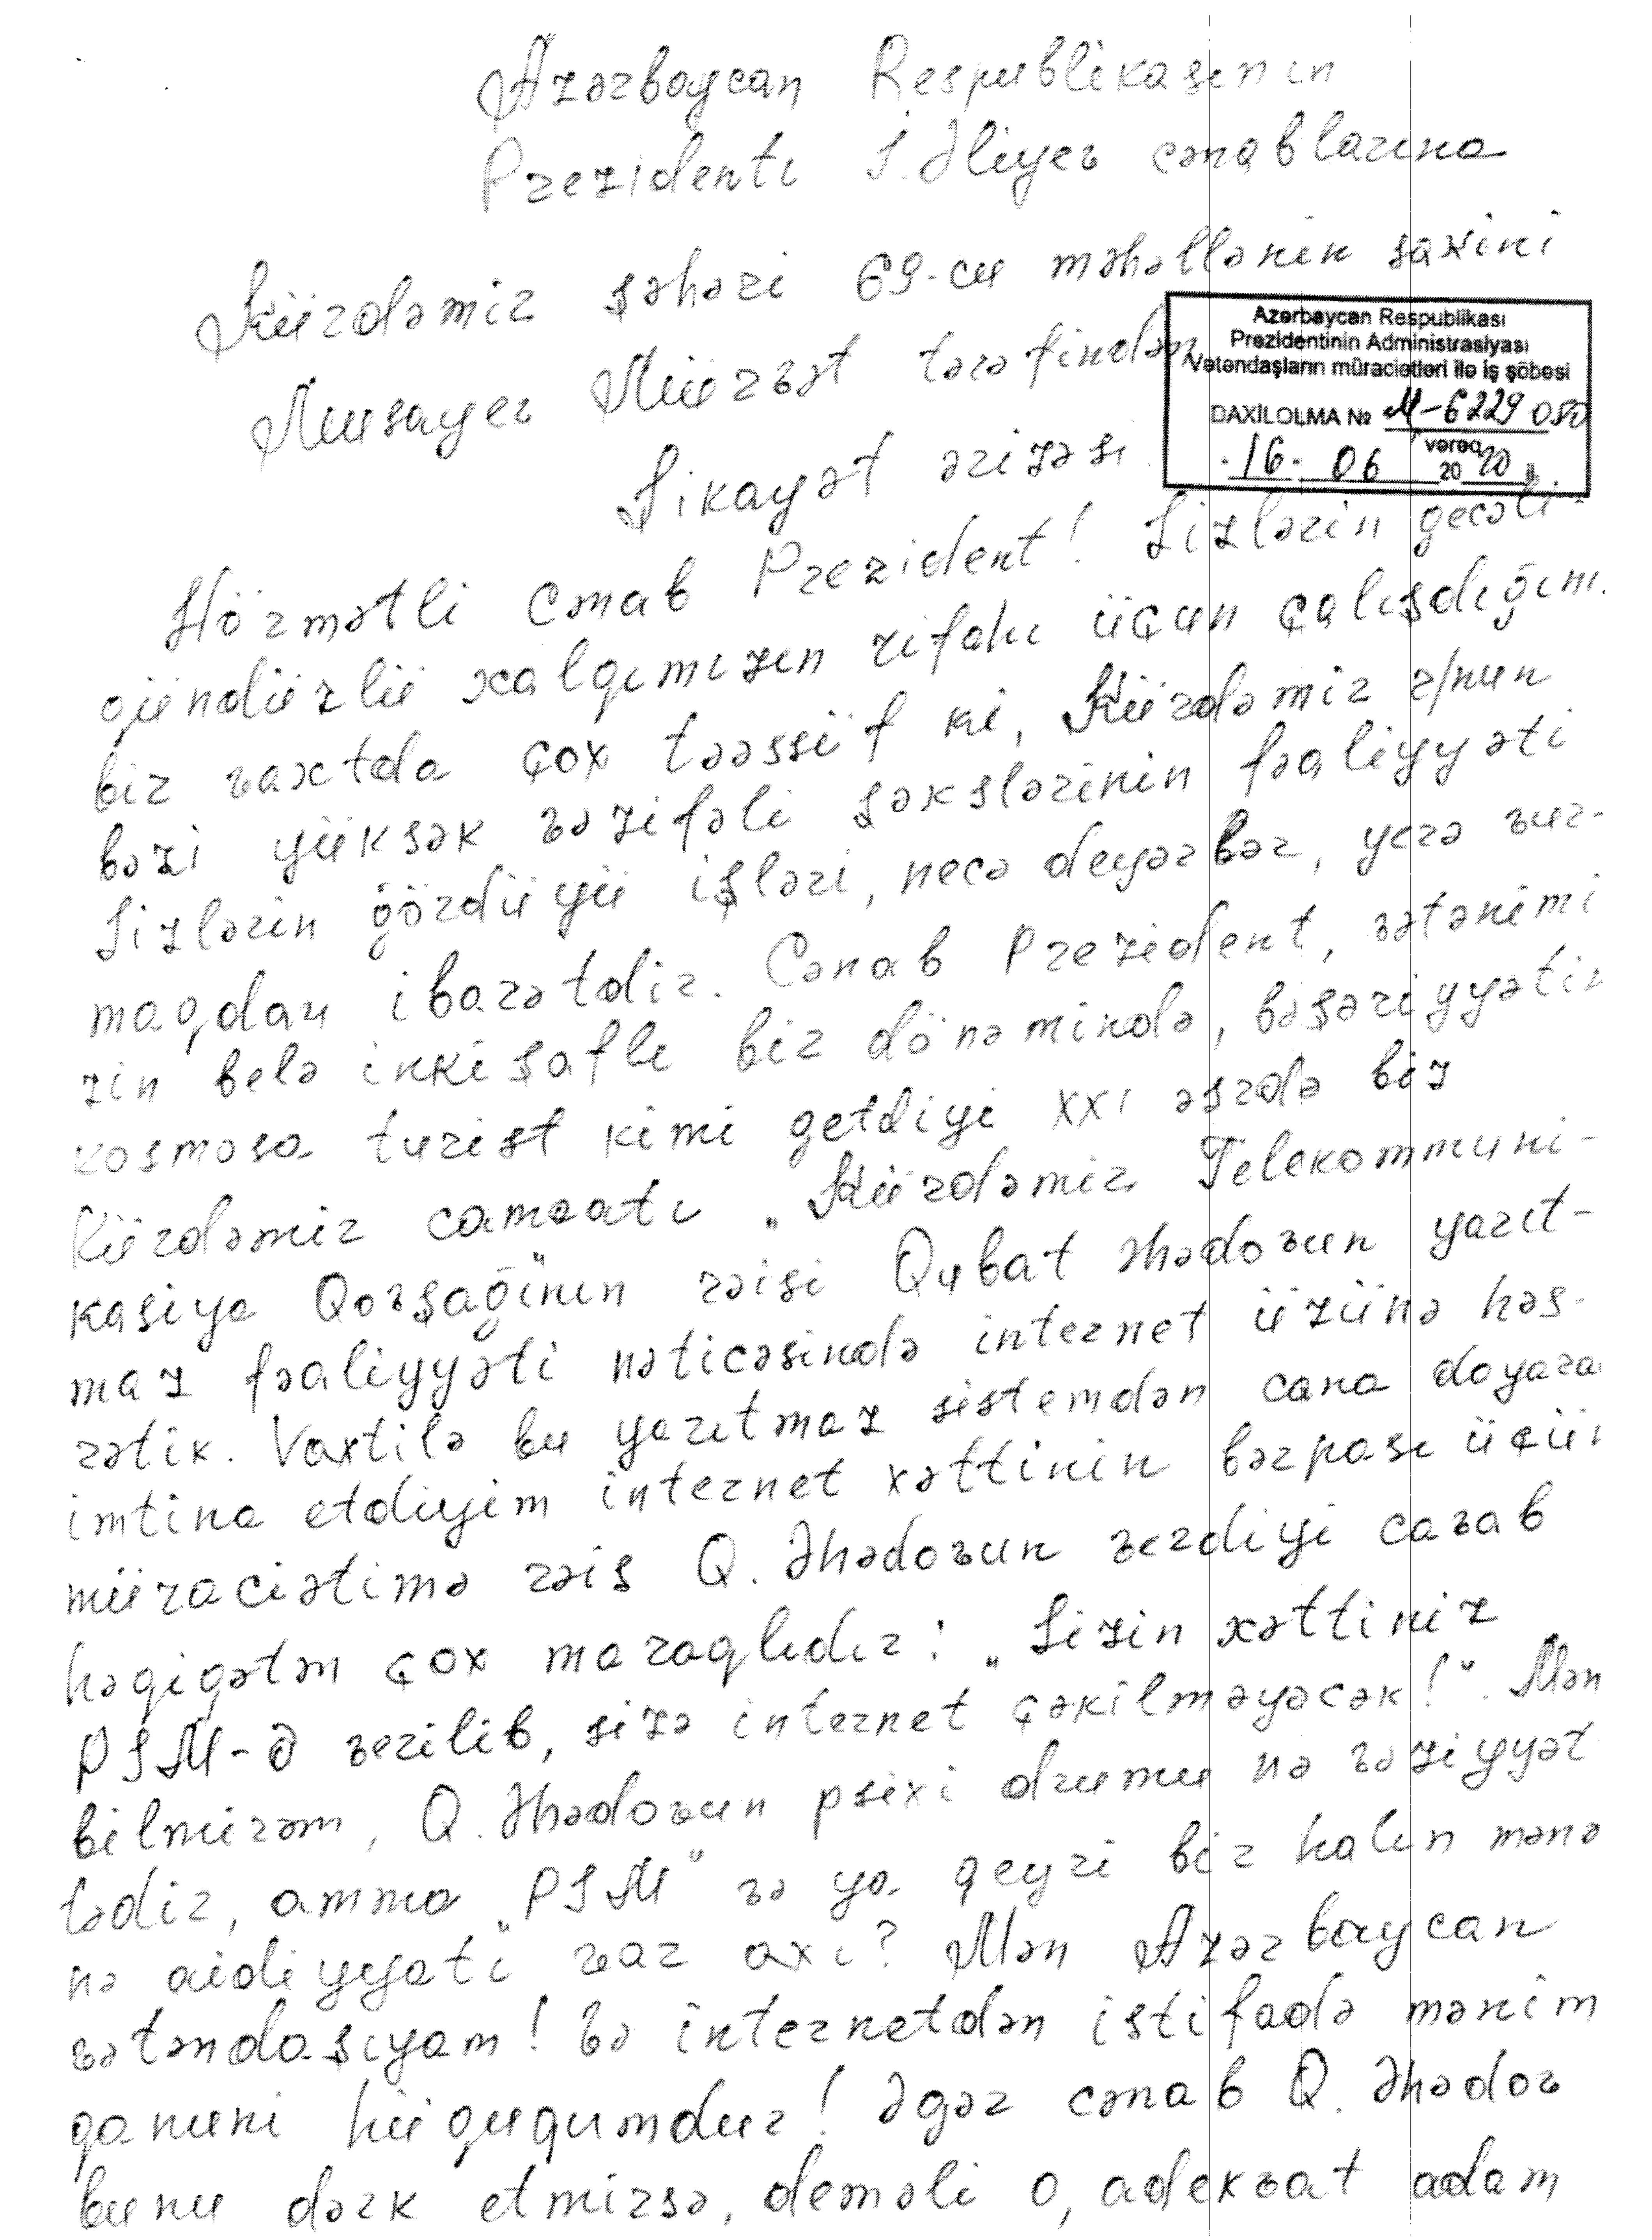 Azərbaycan Respublikasının
Prezidenti İ. Əliyev cənablarına
Kürdəmir şəhəri 69-cu məhəllənin sakini
Musayev Mürvət tərəfindən
Şikayət ərizəsi
Azərbaycan Respublikası
Prezidentinin Administrasiyası
Vətəndaşların müraciətləri ilə iş şöbəsi
DAXİLOLMA № M-6229 080
vərəq
16. 06 2020
Hörmətli Cənab Prezident! Sizlərin gecəli-
gündüzlü xalqımızın rifahı üçün çalışdığını
bir vaxtda çox təəssüf ki, Kürdəmir r/nun
bəzi yüksək vəzifəli şəxslərinin fəaliyyəti
Sizlərin gördüyü işləri, necə deyərlər, yerə vur-
maqdan ibarətdir. Cənab Prezident, vətənimi
zin belə inkişaflı bir dönəmində, bəşəriyyətin
kosmosa turist kimi getdiyi XXI əsrdə biz
Kürdəmir camaatı „Kürdəmir Telekommuni-
kasiya Qovşağı"nın rəisi Qubat Əhədovun yarıt-
maz fəaliyyəti nəticəsində internet üzünə həs-
rətik. Vaxtilə bu yarıtmaz sistemdən cana doyaraq
imtina etdiyim internet xəttinin bərpası üçün
müraciətimə rəis Q. Əhədovun verdiyi cavab
həqiqətən çox maraqlıdır: „Sizin xəttiniz
PSM-ə verilib, sizə internet çəkilməyəcək!". Mən
bilmirəm, Q. Əhədovun psixi drumu nə vəziyyət
tədir, amma „PSM" və ya qeyri bir halın mənə
nə aidiyyəti var axı? Mən Azərbaycan
vətəndaşıyam! Və internetdən istifadə mənim
qanuni hüququmdur! Əgər cənab Q. Əhədov
bunu dərk etmirsə, deməli o, adekvat adam